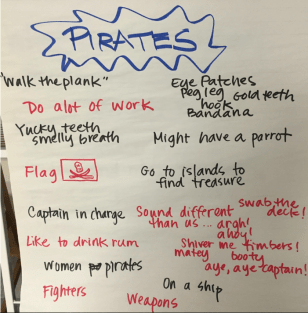 PIRATES
"Walk the plank"
Eye Patches
peg leg
Gold teeth
hook
Bandana
Do alot of work
Yucky teeth
smelly breath
Might have a parrot
Flag
Go to islands to
find treasure
Captain in charge
Sound different
than us... argh!
ahoy!
swab the
deck!
Like to drink rum
Shiver me timbers!
matey
booty
aye, aye captain!
women pirates
On a ship
Fighters
Weapons